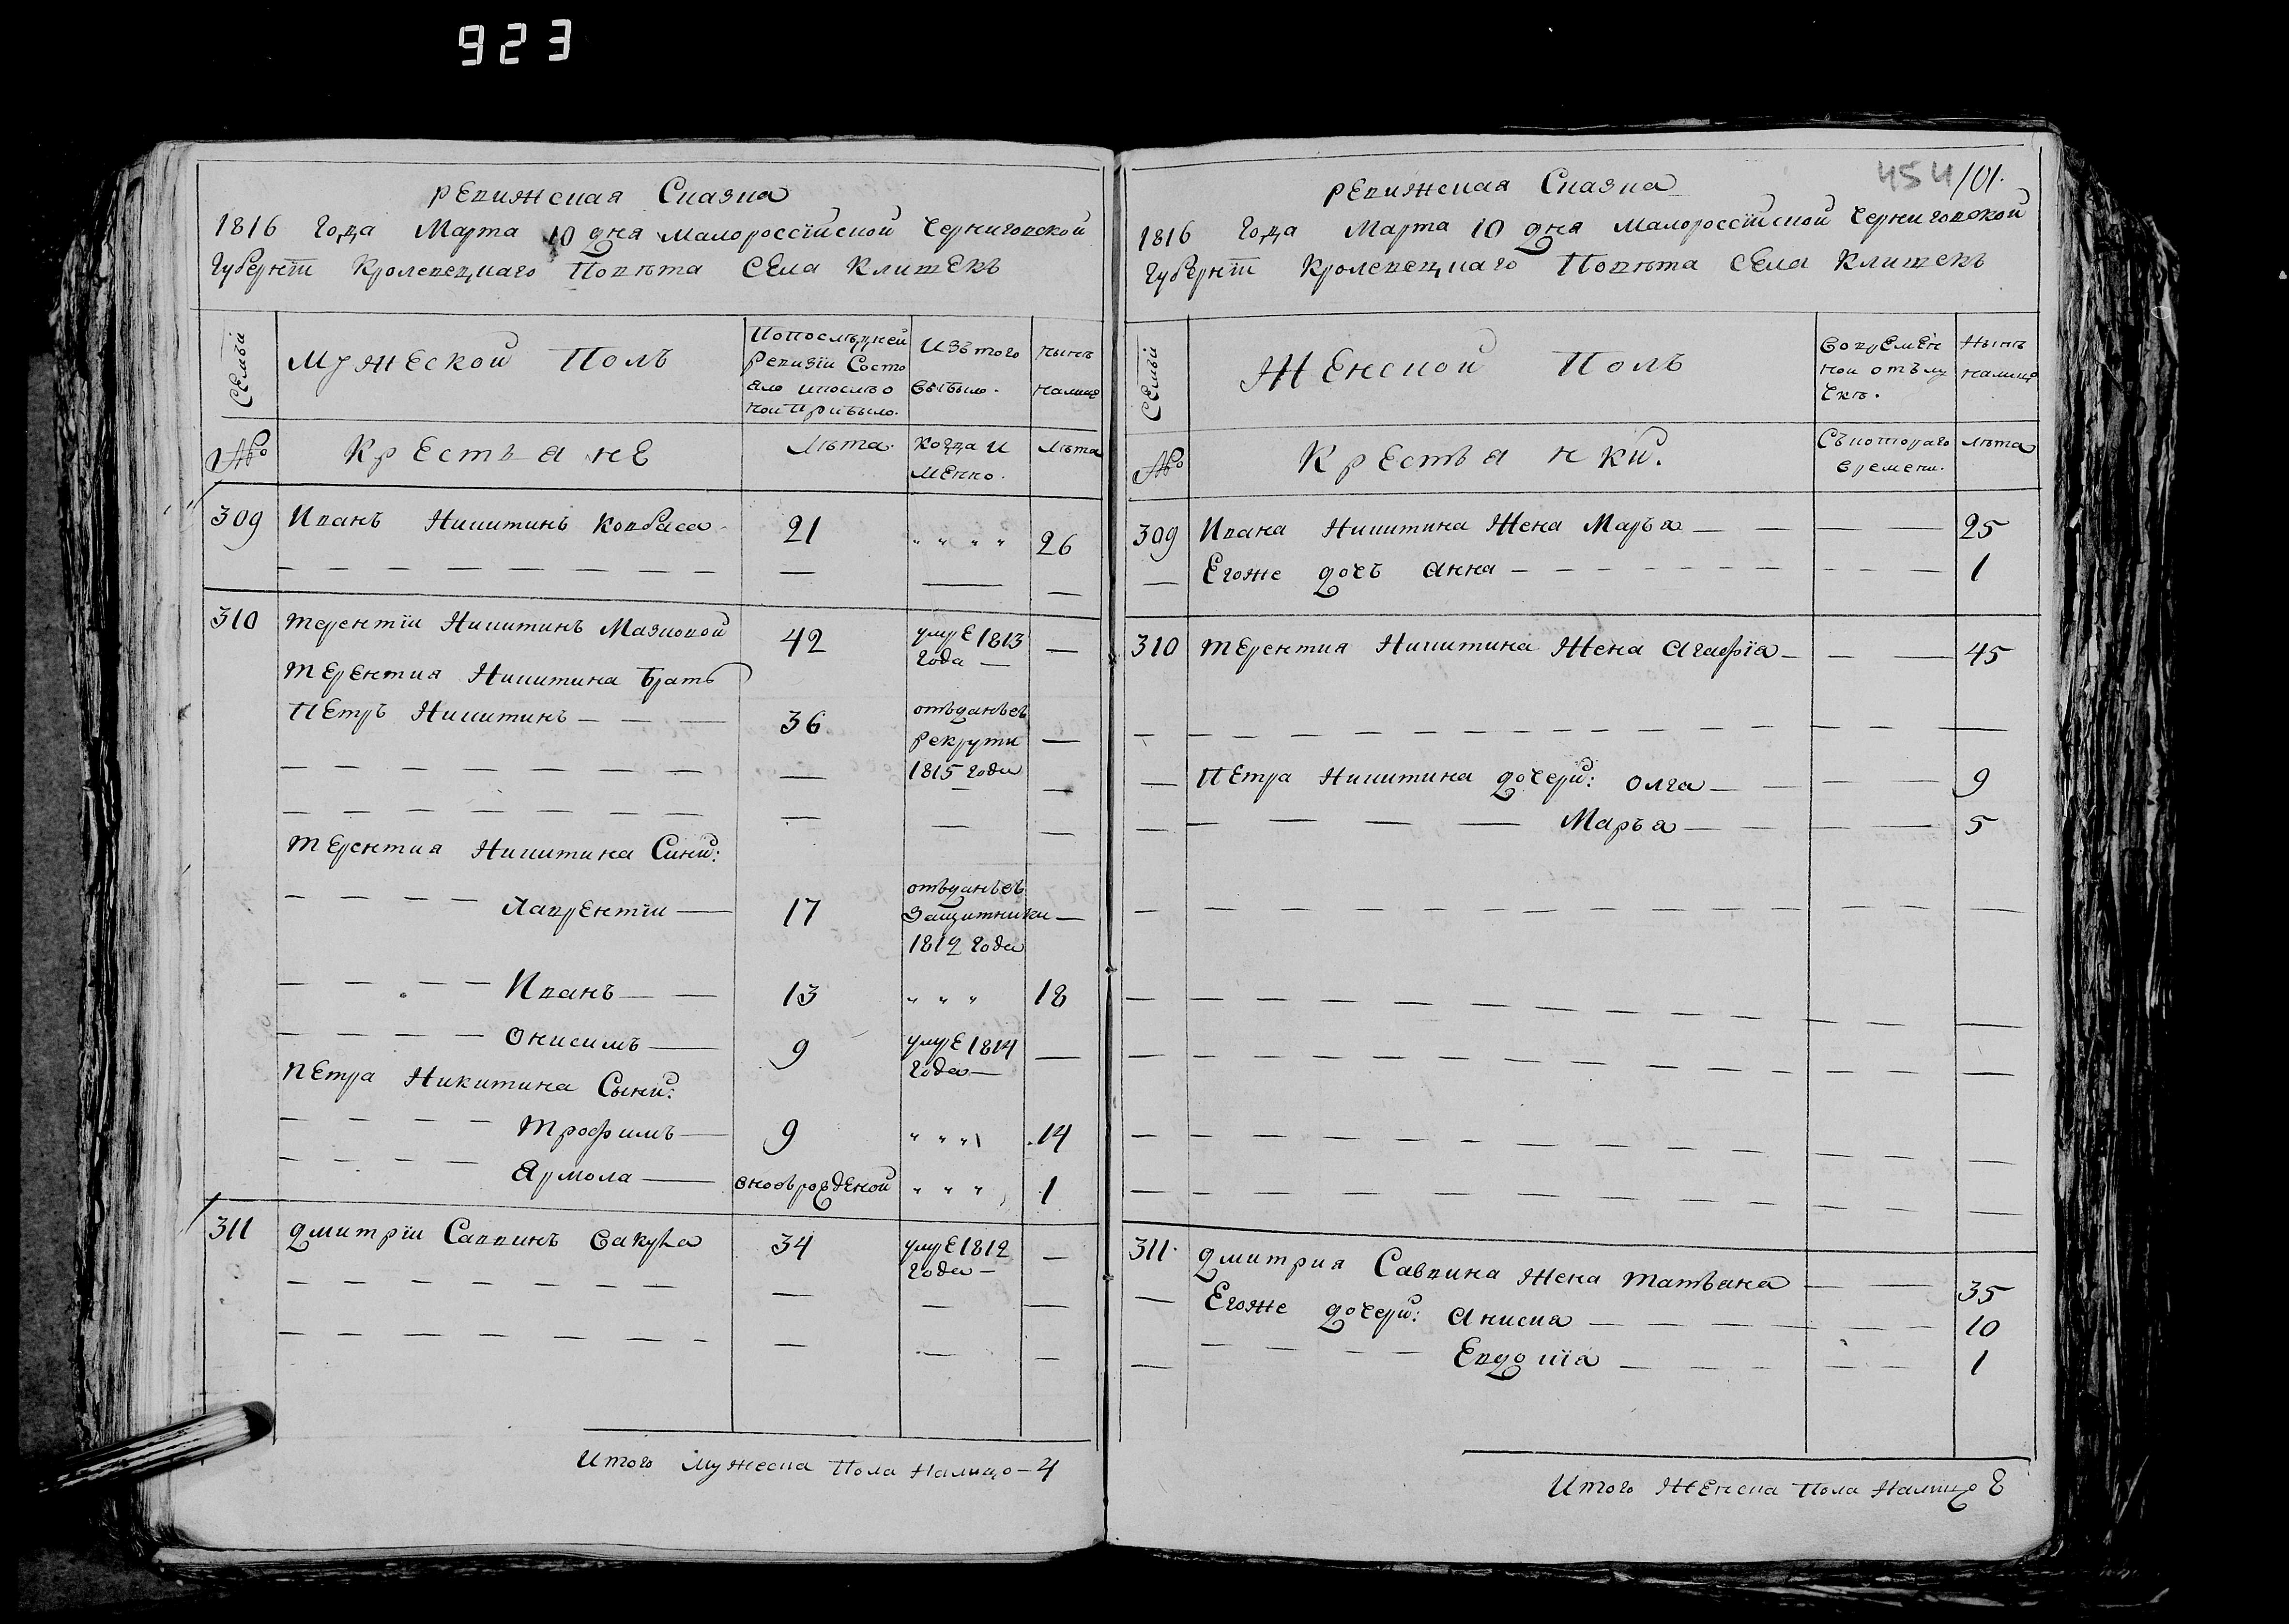 923
Ревижская Сказка
1816 Года Марта 10 дня Малороссїиской Черниговской
Губернїи Кролевецкаго Повѣта Села Клишекъ
Семьи
Мужеской Полъ
Попослѣдней
Ревизїи Состо
яло ипослѣ о
ной Прибыло.
Изъ того
выбыло.
нынѣ
налицо
№
Крестьяне
Лѣта.
Когда и
менно.
Лѣта
309 Иванъ Никитинъ Ковбаса 21 " " " " 26
310 Терентїи Никитинъ Мазковой 42 умре 1813
года
Терентия Никитина Братъ
Петръ Никитинъ 36 отъданъвъ
рекруты
1815 года
Терентия Никитина Сыни:
Лаврентїи 17 отъданъвъ
Защитники
1812 года
Иванъ 13 " " " 18
Онисимъ 9 умре 1814
года
Петра Никитина Сыни:
Трофимъ 9 " " " 14
Ярмола вновърожденой " " " 1
311 Дмитрїи Саввинъ Вакула 34 умре 1812
года
Итого мужеска Пола Налицо 4
454/101.
Ревижская Сказка
1816 Года Марта 10 дня Малороссїиской Черниговской
Губернїи Кролевецкаго Повѣта Села Клишекъ
Семьи
Женской Полъ
Вовремѧн
ной отълу
чкѣ.
Нынѣ
налицо
№
Крестьянки.
Съкотораго
времени.
лѣта
309 Ивана Никитина Жена Марья 25
Егоже дочъ Анна 1
310 Терентия Никитина Жена Агафїа 45
Петра Никитина дочери: Олга 9
Марья 5
311. Дмитрия Саввина Жена Татьяна 35
Егоже дочери: Анисия 10
Евдокїа 1
Итого Женска Пола Налицо 8